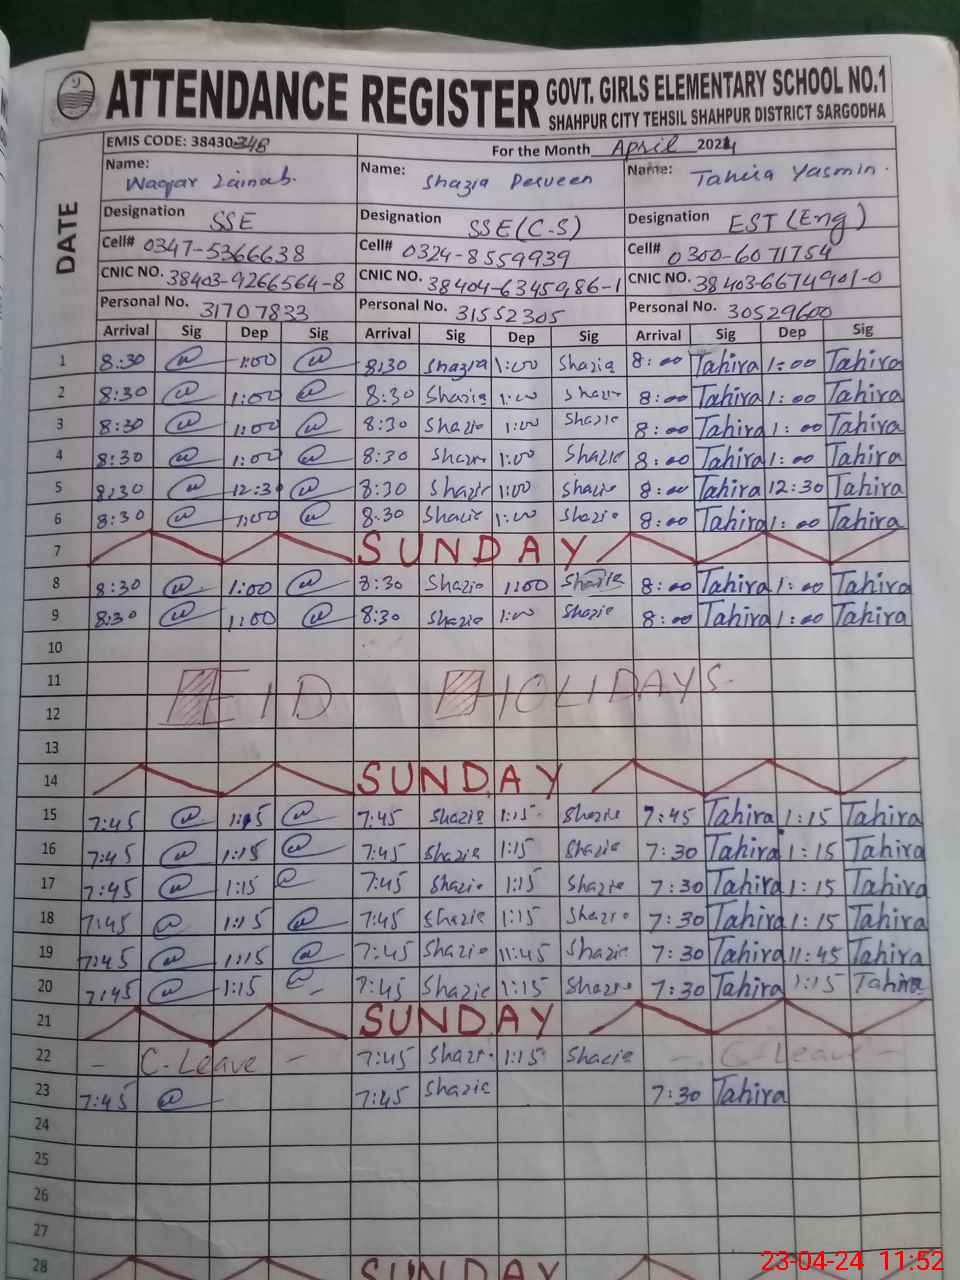 ATTENDANCE REGISTER GOVT. GIRLS ELEMENTARY SCHOOL NO.1
SHAHPUR CITY TEHSIL SHAHPUR DISTRICT SARGODHA
EMIS CODE: 38430348 For the Month April 2024
DATE
Name: Waqar Zainab. Name: Shazia Perveen Name: Tahira Yasmin.
Designation SSE Designation SSE (C-S) Designation EST (Eng)
Cell# 0347-5366638 Cell# 0324-8559939 Cell# 0300-6071754
CNIC NO. 38403-9266564-8 CNIC NO. 38404-6345986-1 CNIC NO. 38403-6674901-0
Personal No. 31707833 Personal No. 31552305 Personal No. 30529600
Arrival Sig Dep Sig Arrival Sig Dep Sig Arrival Sig Dep Sig
1 8:30 1:00 8:30 Shazia 1:00 Shazia 8:00 Tahira 1:00 Tahira
2 8:30 1:00 8:30 Shazia 1:00 Shazia 8:00 Tahira 1:00 Tahira
3 8:30 1:00 8:30 Shazia 1:00 Shazia 8:00 Tahira 1:00 Tahira
4 8:30 1:00 8:30 Shazia 1:00 Shazia 8:00 Tahira 1:00 Tahira
5 8:30 12:30 8:30 Shazia 1:00 Shazia 8:00 Tahira 12:30 Tahira
6 8:30 1:00 8:30 Shazia 1:00 Shazia 8:00 Tahira 1:00 Tahira
7 SUNDAY
8 8:30 1:00 8:30 Shazia 1:00 Shazia 8:00 Tahira 1:00 Tahira
9 8:30 1:00 8:30 Shazia 1:00 Shazia 8:00 Tahira 1:00 Tahira
10
11 EID HOLIDAYS
12
13
14 SUNDAY
15 7:45 1:15 7:45 Shazia 1:15 Shazia 7:45 Tahira 1:15 Tahira
16 7:45 1:15 7:45 Shazia 1:15 Shazia 7:30 Tahira 1:15 Tahira
17 7:45 1:15 7:45 Shazia 1:15 Shazia 7:30 Tahira 1:15 Tahira
18 7:45 1:15 7:45 Shazia 1:15 Shazia 7:30 Tahira 1:15 Tahira
19 7:45 1:15 7:45 Shazia 11:45 Shazia 7:30 Tahira 11:45 Tahira
20 7:45 1:15 7:45 Shazia 1:15 Shazia 7:30 Tahira 1:15 Tahira
21 SUNDAY
22 - C-Leave - 7:45 Shazia 1:15 Shazia - C-Leave -
23 7:45 7:45 Shazia 7:30 Tahira
24
25
26
27
28 SUNDAY
23-04-24 11:52